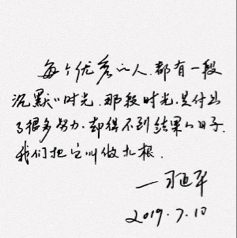 每个优秀的人.都有一段
沉默的时光.那段时光,是付出
了很多努力.却得不到结果的日子.
我们把它叫做扎根.
一习迎军
2019.7.10